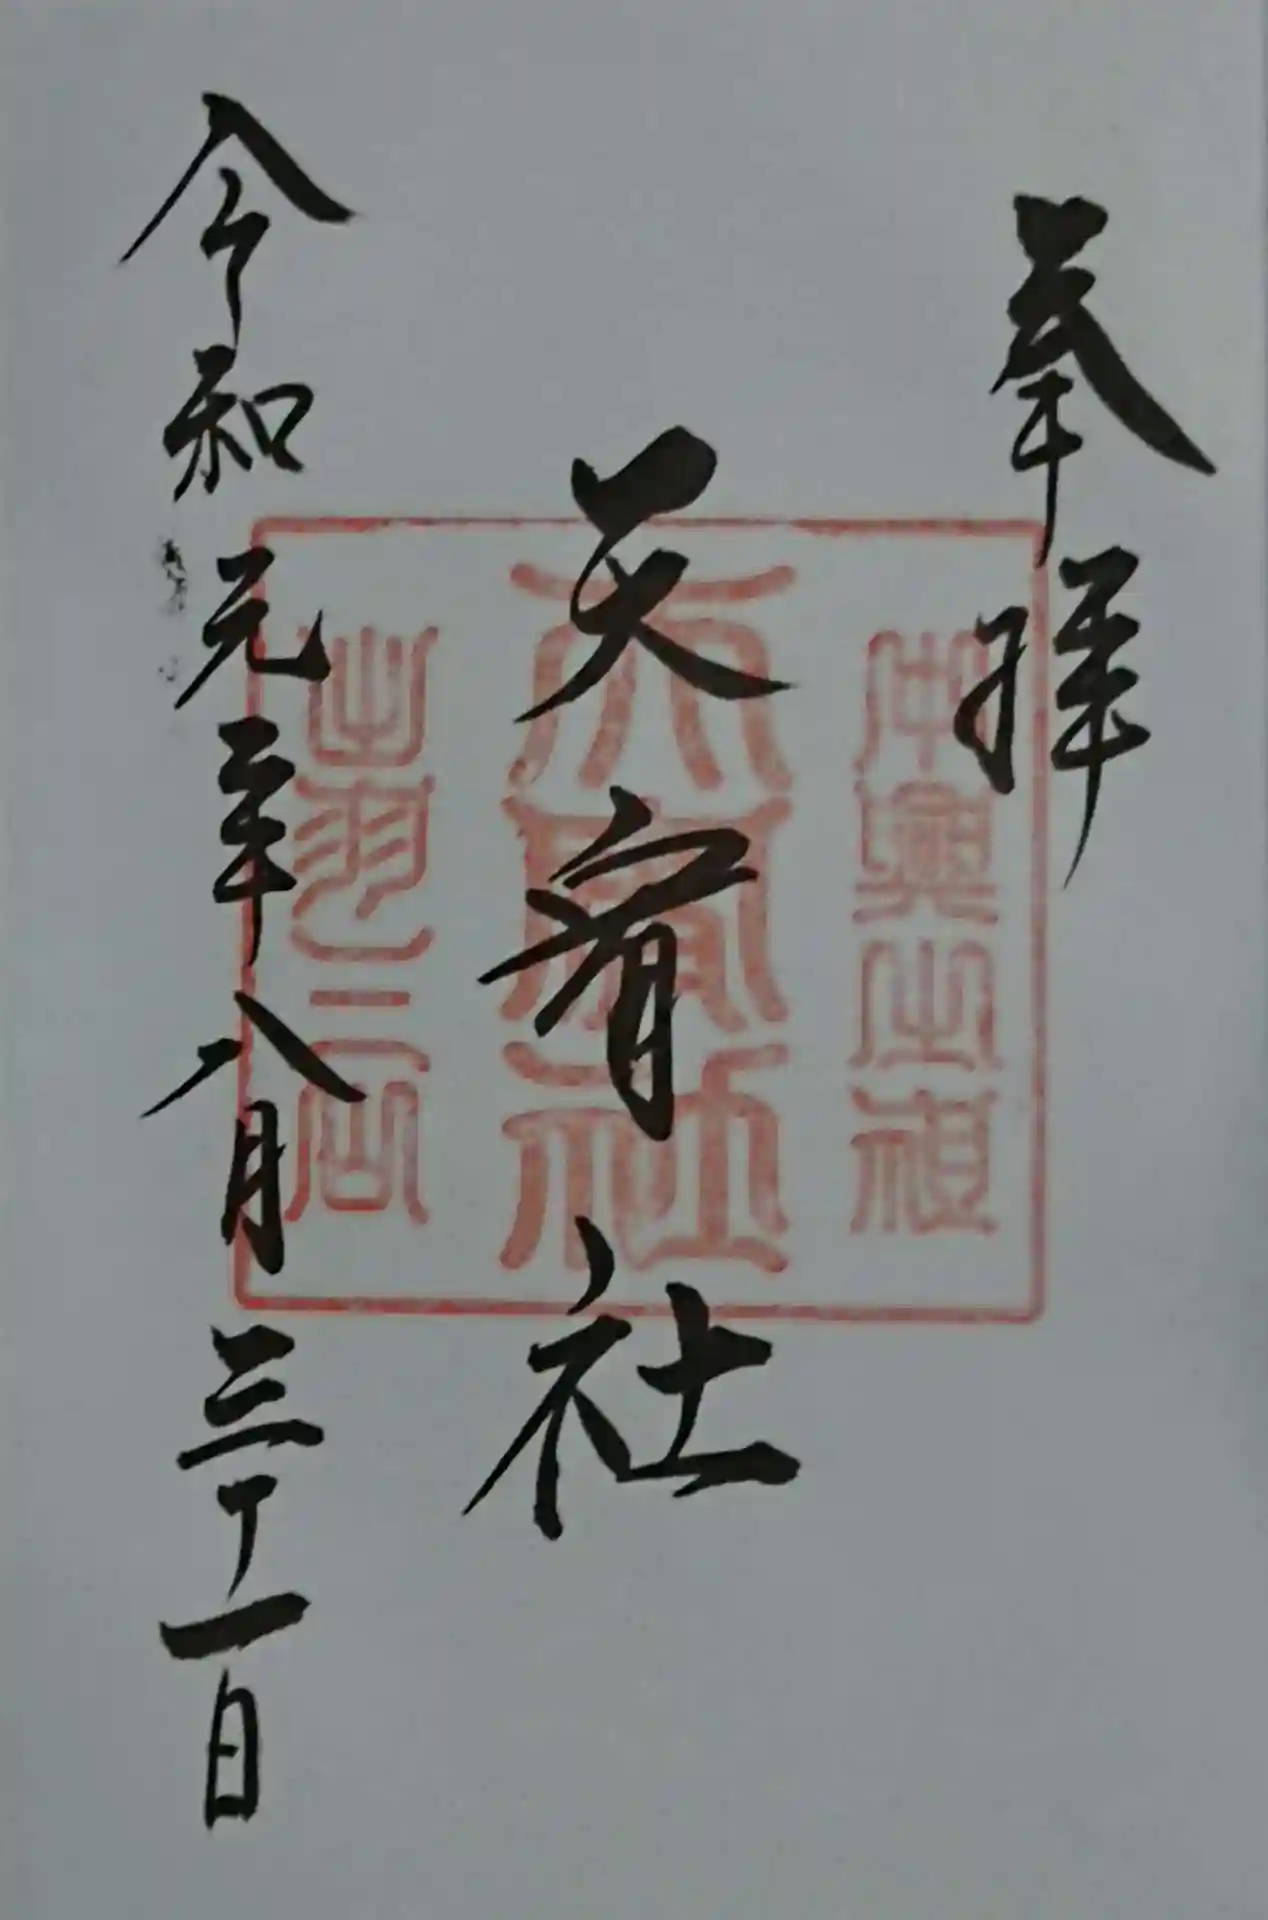 奉拝
天宥社
令和元年八月三十一日
中興之祖
天宥社
出羽三山